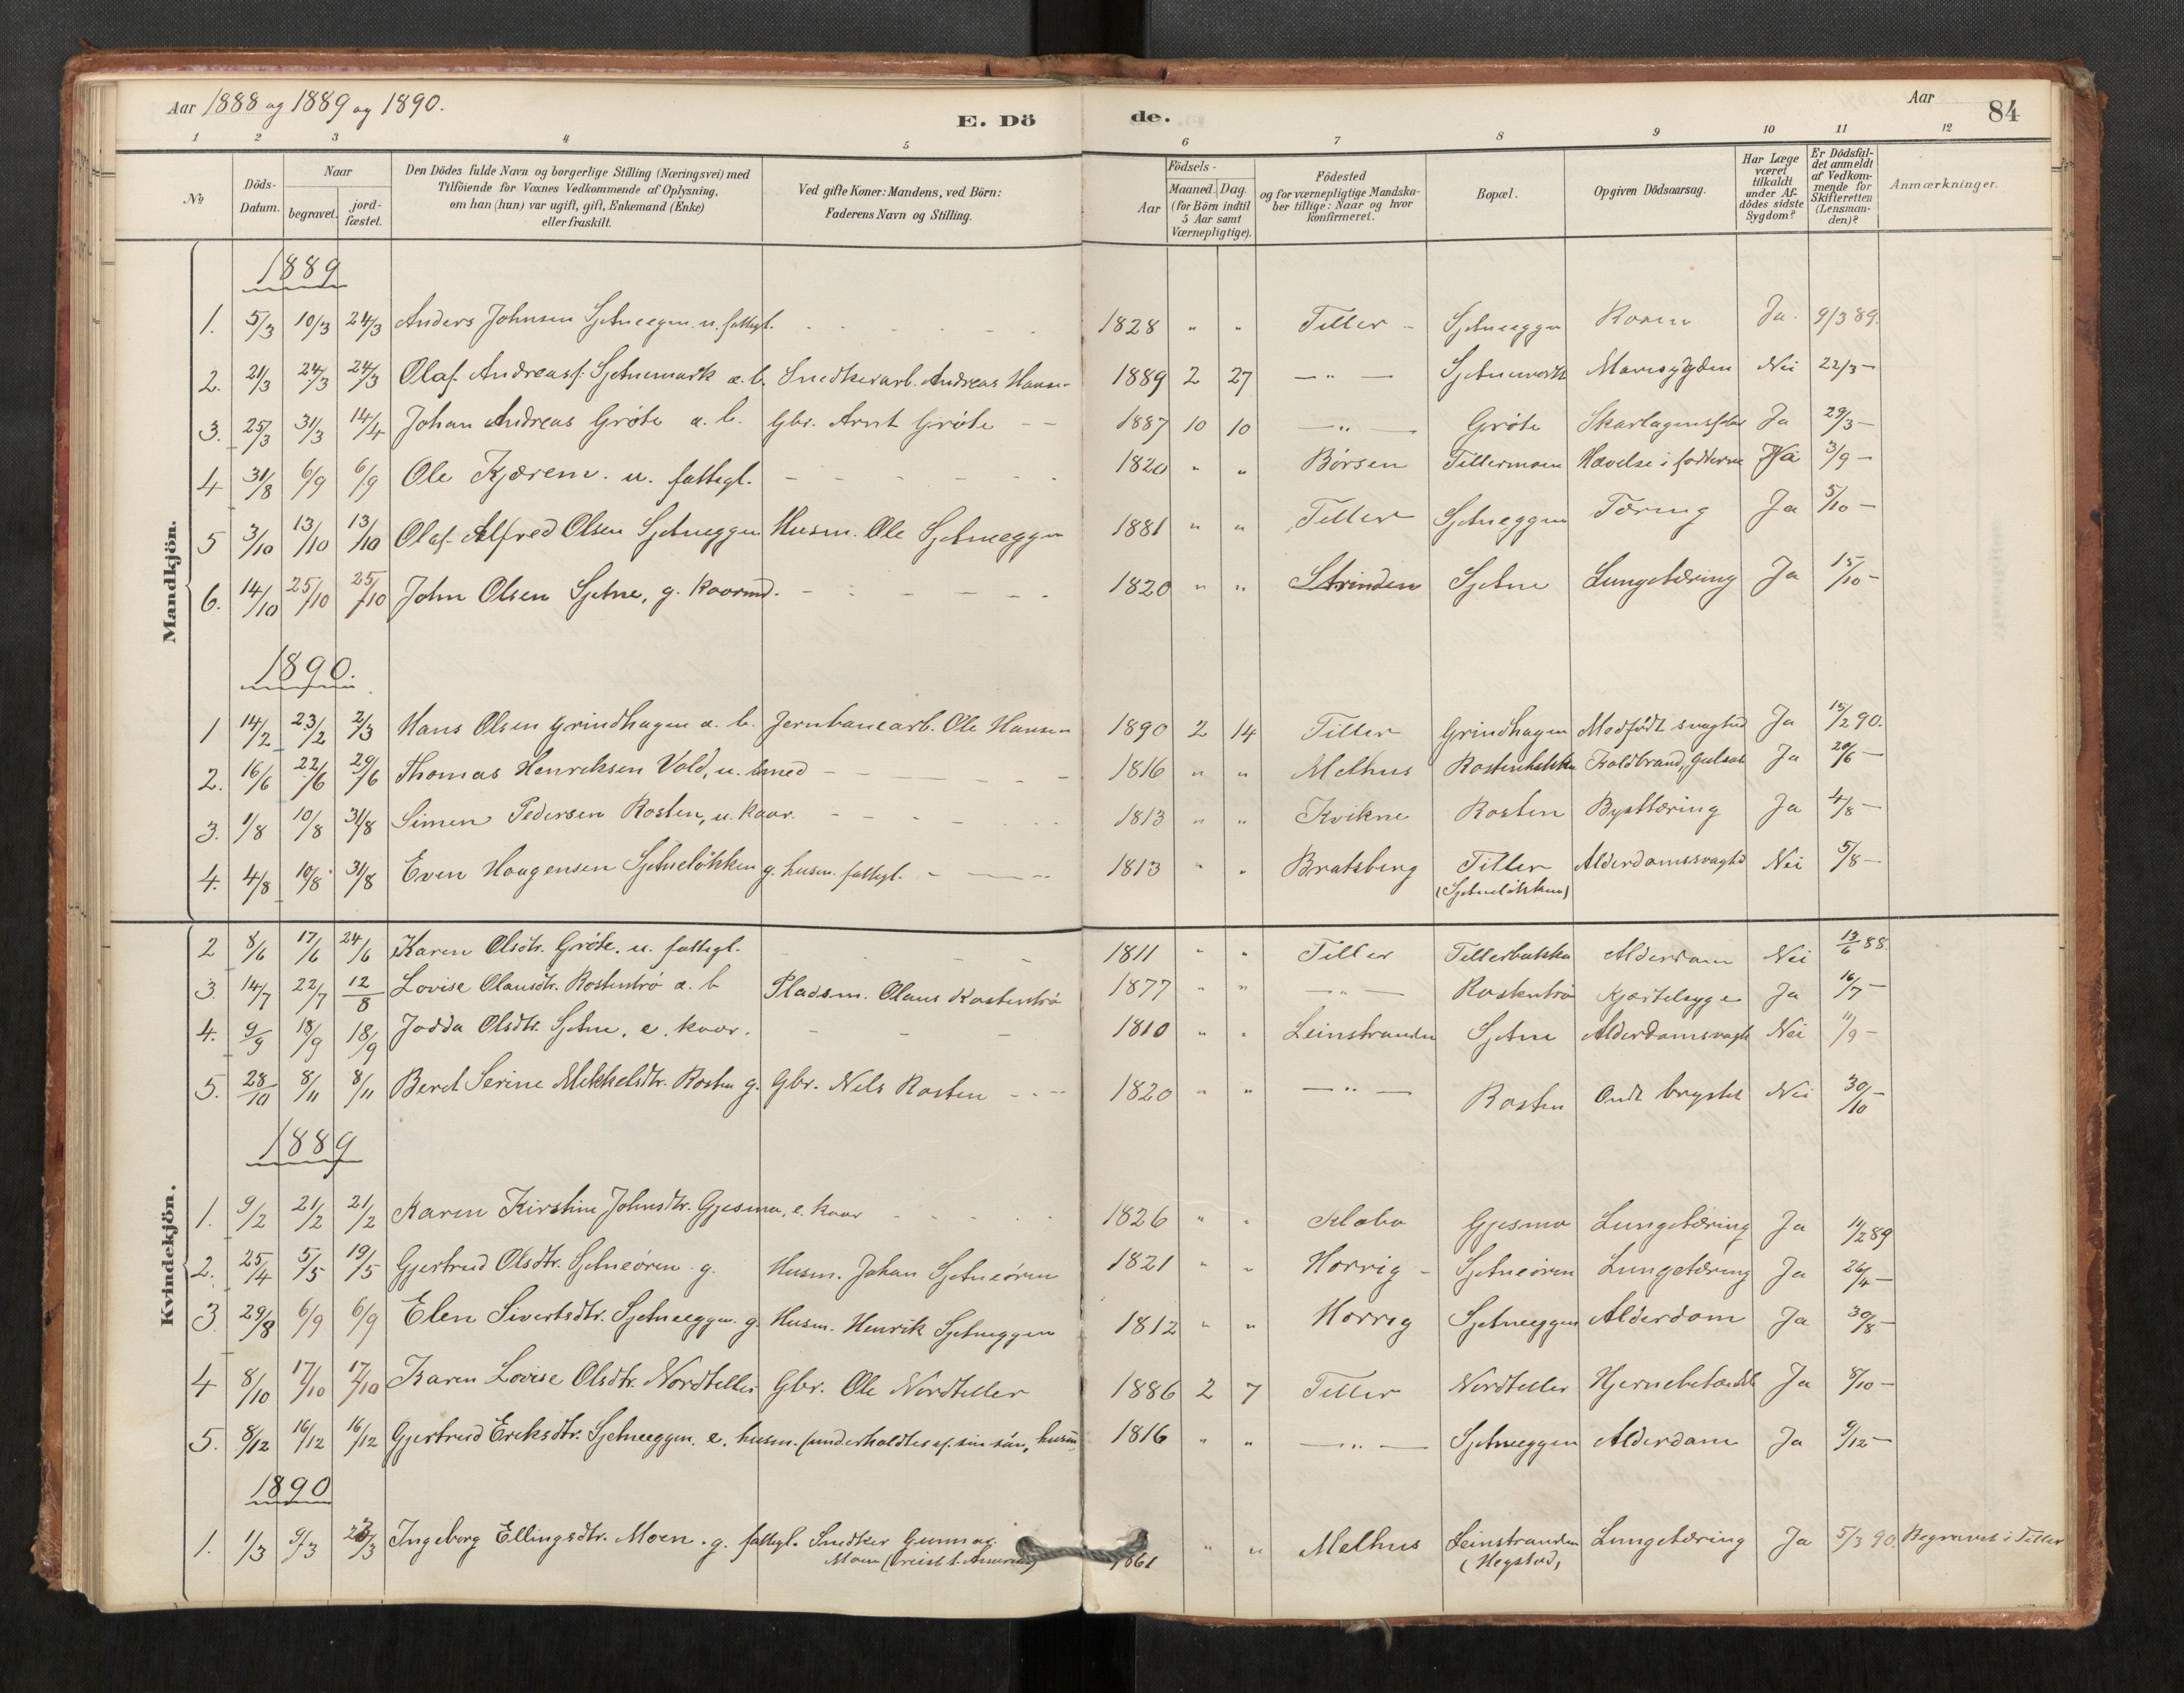 Aar 1888 og 1889 og 1890.
E. Dö
de.
Aar
84
1 2 3 4 5 6 7 8 9 10 11 12
No
Döds-Datum.
Naar
begravet.
jord-fæstet.
Den Dödes fulde Navn og borgerlige Stilling (Næringsvei) med
Tilföiende for Voxnes Vedkommende af Oplysning,
om han (hun) var ugift, gift, Enkemand (Enke)
eller fraskilt.
Ved gifte Koner: Mandens, ved Börn:
Faderens Navn og Stilling.
Födsels-
Aar
Maaned. Dag.
(for Börn indtil
5 Aar samt
Værnepligtige).
Födested
og for værnepligtige Mandska-
ber tillige: Naar og hvor
konfirmeret.
Bopæl.
Opgiven Dödsaarsag.
Har Læge
været
tilkaldt
under Af-
dödes sidste
Sygdom?
Er Dödsfal-
det anmeldt
af Vedkom-
mende for
Skifteretten
(Lensman-
den)?
Anmærkninger.
Mandkjön.
1889
1. 5/3 10/3 24/3 Anders Johnsen Sjetneegen. u. fattigl. - - - 1828 " " Tiller - Sjetneeggen Ja. 9/3 89.
2. 21/3 24/3 24/3 Olaf Andreasf. Sjetnemark a. b. Snedkerarb. Andreas Hansen 1889 2 27 — " — Sjetnemark Mavesygdom Nei 22/3 —
3. 25/3 31/3 14/4 Johan Andreas Gröte a. b. Gbr. Arnt Gröte - - 1887 10 10 — " — Gröte Skarlagensfeber Ja 29/3 —
4 31/8 6/9 6/9 Ole Kjærem. u. fattigl. - - - 1820 " " Börsen Tillermoen Hævelse i födderne 3/9 —
5 3/10 13/10 13/10 Olaf Alfred Olsen Sjetneggen Husm. Ole Sjetneeggen 1881 " " Tiller Sjetneggen Tæring Ja 5/10 —
6. 14/10 25/10 25/10 John Olsen Sjetne, g. kaarmd. - - - 1820 " " Strinden Sjetne Lungetæring Ja 15/10 —
1890.
1 14/2 23/2 2/3 Hans Olsen Grindhagen a. b. Jernbanearb. Ole Hansen 1890 2 14 Tiller Grindhagen Medfödt svaghed Ja 15/2 90.
2. 16/6 22/6 29/6 Thomas Henriksen Vold, u. smed - - - 1816 " " Melhus Rostenbakke Koldbrand, Gulsot Ja 20/6 —
3. 1/8 10/8 31/8 Simen Pedersen Rosten, u. kaar. - - - 1813 " " Kvikne Rosten Brysttæring Ja 4/8 —
4. 4/8 10/8 31/8 Even Haagensen Sjetnelökken g. husm. fattigl. - — - 1813 " " Bratsberg Tiller Alderdomssvaghd Nei 5/8 —
(Sjetnelökken)
Kvindekjön.
2 8/6 17/6 24/6 Karen Olsdtr. Gröte. u. fattigl. - - - 1811 " " Tiller Tillerbakke Alderdom Nei 13/6 88.
3. 14/7 22/7 12/8 Lovise Olausdtr. Rostentrö a. b Pladsm. Olaus Rostentrö 1877 " " — " — Rostentrö Kjertelsyge Ja 16/7 —
4. 9/9 18/9 18/9 Jodda Olsdtr. Sjetne, e. kaar. - - - 1810 " " Leinstranden Sjetne Alderdomsvagh Nei 11/9 —
5. 28/10 8/11 8/11 Beret Serine Mekkelsdtr. Rosten g. Gbr. Nels Rosten - - - 1820 " " — " — Rosten Ondt brystet Nei 30/10 —
1889
1. 9/2 21/2 21/2 Karen Kirstine Johnsdtr. Gjesmo, e. kaar - - - 1826 " " Klæbo Gjesmo Lungetæring Ja 11/2 89
2. 25/4 5/5 19/5 Gjertrud Olsdtr. Sjetneören g. Husm. Johan Sjetneören 1821 " " Horrig - Sjetneören Lungetæring Ja 26/4 —
3 29/8 6/9 6/9 Elen Sivertsdtr. Sjetneeggen. g. Husm. Henrik Sjetneggen 1812 " " Horrig Sjetneeggen Alderdom Ja 30/8 —
4 8/10 17/10 17/10 Karen Lovise Olsdtr. Nordtiller Gbr. Ole Nordtiller 1886 2 7 Tiller Nordtiller Hjernebetændels Ja 8/10 —
5. 8/12 16/12 16/12 Gjertrud Eriksdtr. Sjetneeggen. e. husm. (underholdtes af sin sön, husm. 1816 " " — " — Sjetneeggen Alderdom Ja 9/12 —
1890
1. 1/3 9/3 23/3 Ingeborg Ellingsdtr. Moen. g. fattigl. Snedker Gunnar 1861 " " Melhus Leinstranden Lungetæring Ja 5/3 90. Begravet i Tiller
Moen (reist t. Amerika)
(Hegstad)